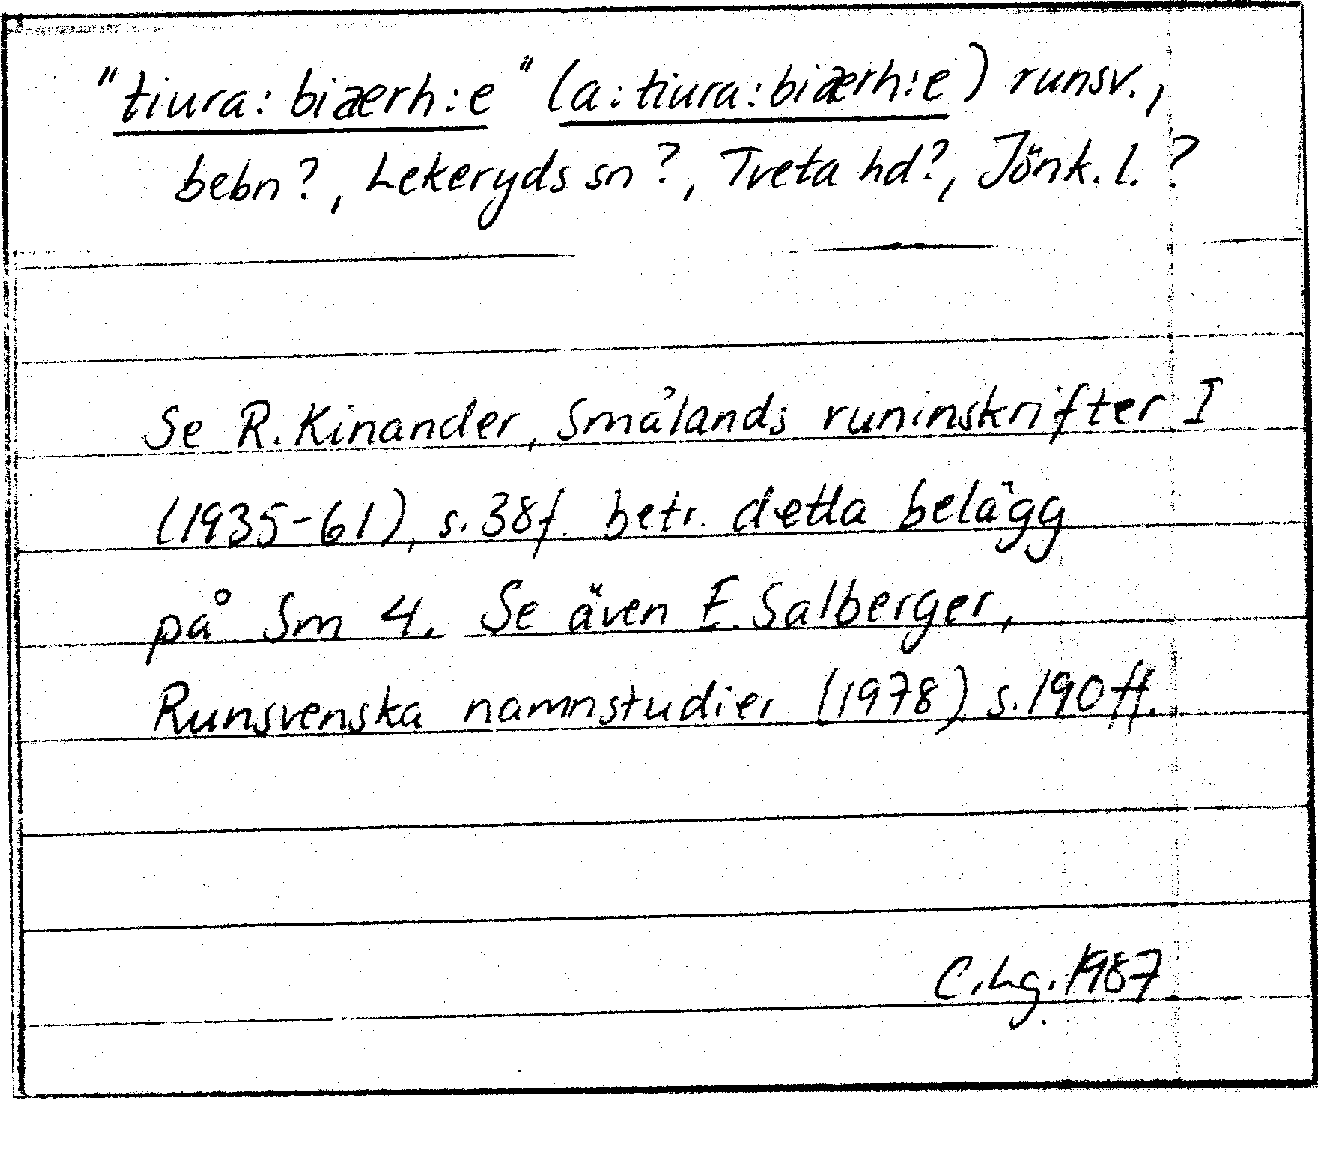 "tiura: biærh:e" (a:tiura:biærh:e) runsv.,
bebn?, Lekeryds sn?, Tveta hd?, Jönk. l.?
Se R. Kinander, Smålands runinskrifter I
(1935-61), s. 38f. betr. detta belägg
på Sm 4. Se även E. Salberger,
Runsvenska namnstudier (1978) s. 190 ff.
C. Lg. 1987